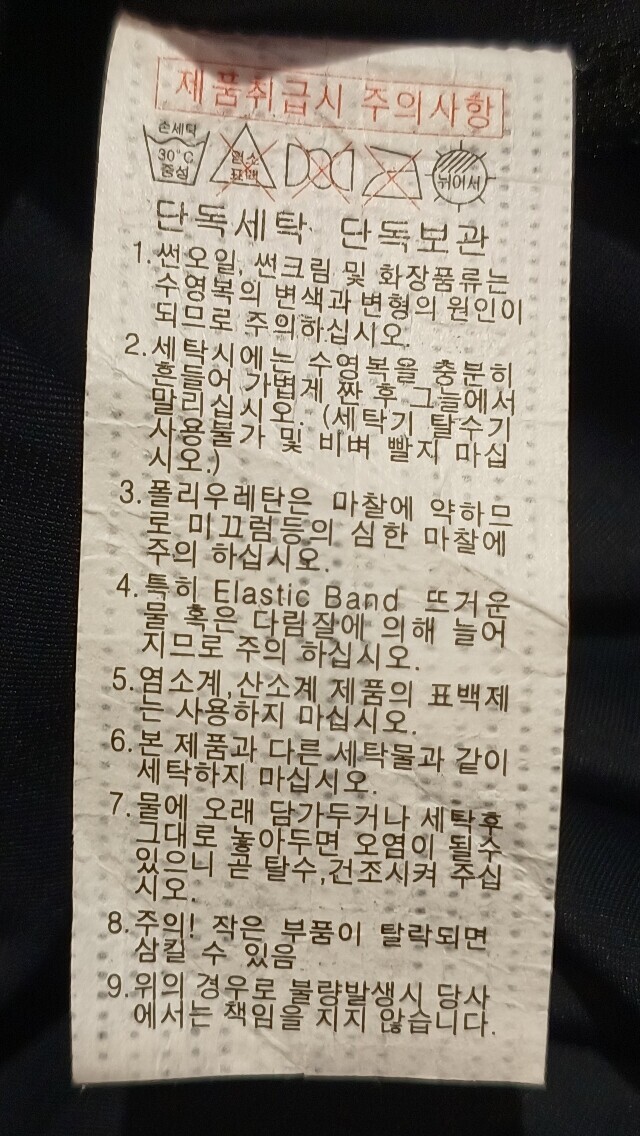 제품취급시 주의사항
손세탁
30°C
중성
염소
표백
뉘어서
단독세탁 단독보관
1.썬오일, 썬크림 및 화장품류는
수영복의 변색과 변형의 원인이
되므로 주의하십시오.
2.세탁시에는 수영복을 충분히
흔들어 가볍게 짠 후 그늘에서
말리십시오. (세탁기 탈수기
사용불가 및 비벼 빨지 마십
시오.)
3.폴리우레탄은 마찰에 약하므
로 미끄럼등의 심한 마찰에
주의 하십시오.
4.특히 Elastic Band 뜨거운
물 혹은 다림질에 의해 늘어
지므로 주의 하십시오.
5.염소계,산소계 제품의 표백제
는 사용하지 마십시오.
6.본 제품과 다른 세탁물과 같이
세탁하지 마십시오.
7.물에 오래 담가두거나 세탁후
그대로 놓아두면 오염이 될수
있으니 곧 탈수,건조시켜 주십
시오.
8.주의! 작은 부품이 탈락되면
삼킬 수 있음
9.위의 경우로 불량발생시 당사
에서는 책임을 지지 않습니다.